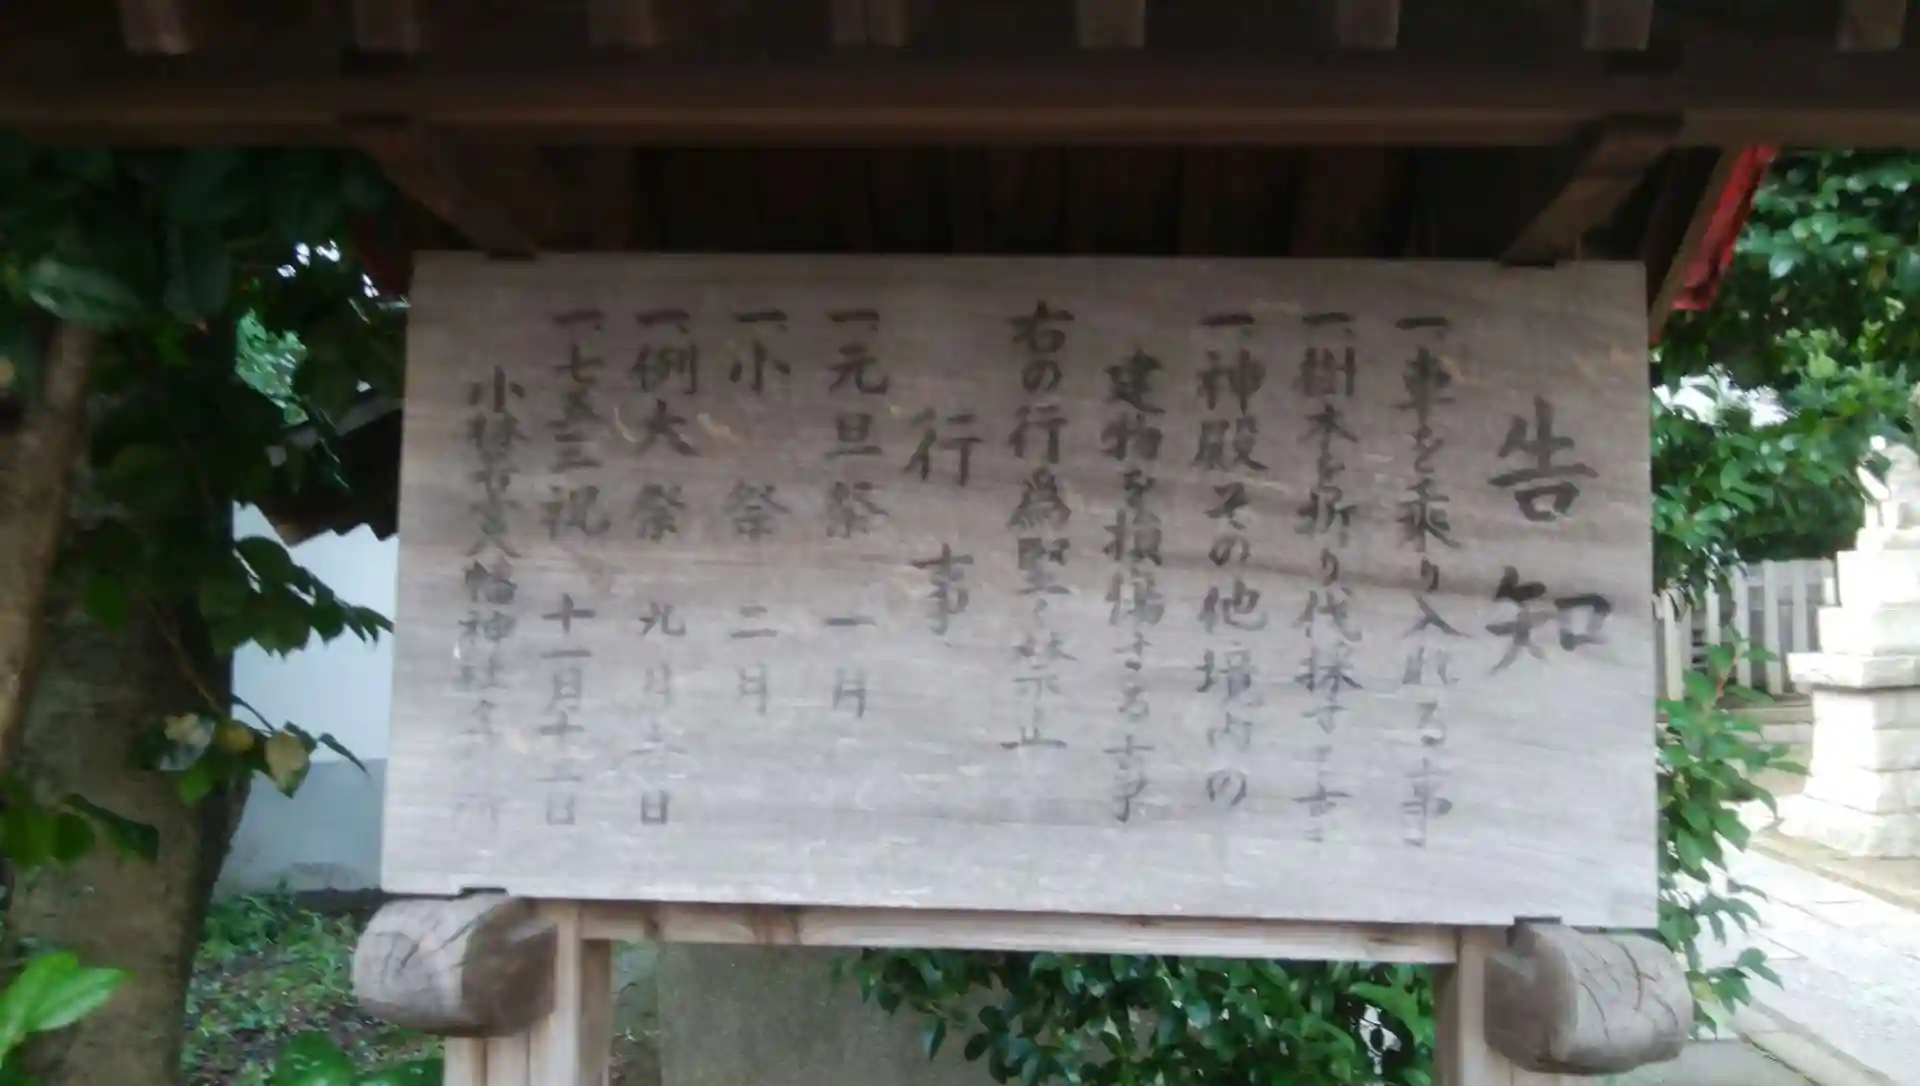 告知
一、車を乗り入れる事
一、樹木を折り伐採する事
一、神殿その他境内の
建物を損傷する事
右の行為堅く禁止
行事
一、元旦祭 一月
一、小祭 二月
一、例大祭 九月 日
一、七五三祝 十一月十 日
小林 八幡神社 所